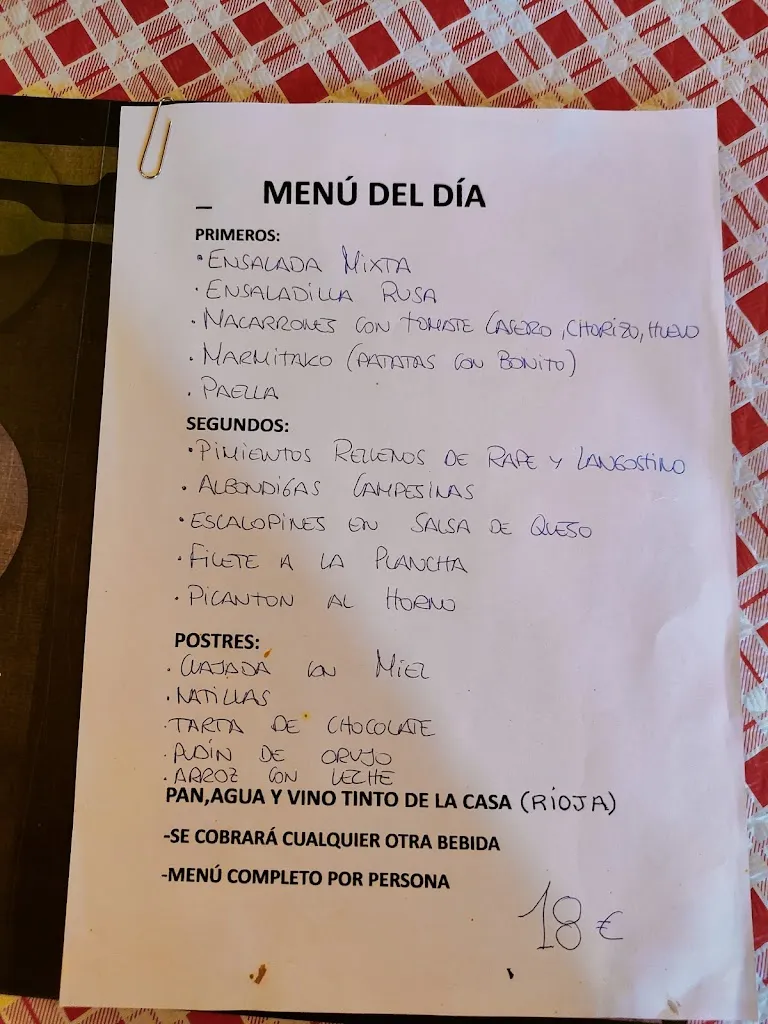 MENÚ DEL DÍA
PRIMEROS:
·ENSALADA MIXTA
·ENSALADILLA RUSA
·MACARRONES CON TOMATE CASERO, CHORIZO, HUEVO
·MARMITAKO (PATATAS CON BONITO)
·PAELLA
SEGUNDOS:
·PIMIENTOS RELLENOS DE RAPE Y LANGOSTINO
·ALBONDIGAS CAMPESINAS
·ESCALOPINES EN SALSA DE QUESO
·FILETE A LA PLANCHA
·PICANTON AL HORNO
POSTRES:
·CUAJADA CON MIEL
·NATILLAS
·TARTA DE CHOCOLATE
·PUDÍN DE ORUJO
·ARROZ CON LECHE
PAN,AGUA Y VINO TINTO DE LA CASA (RIOJA)
-SE COBRARÁ CUALQUIER OTRA BEBIDA
-MENÚ COMPLETO POR PERSONA
18 €